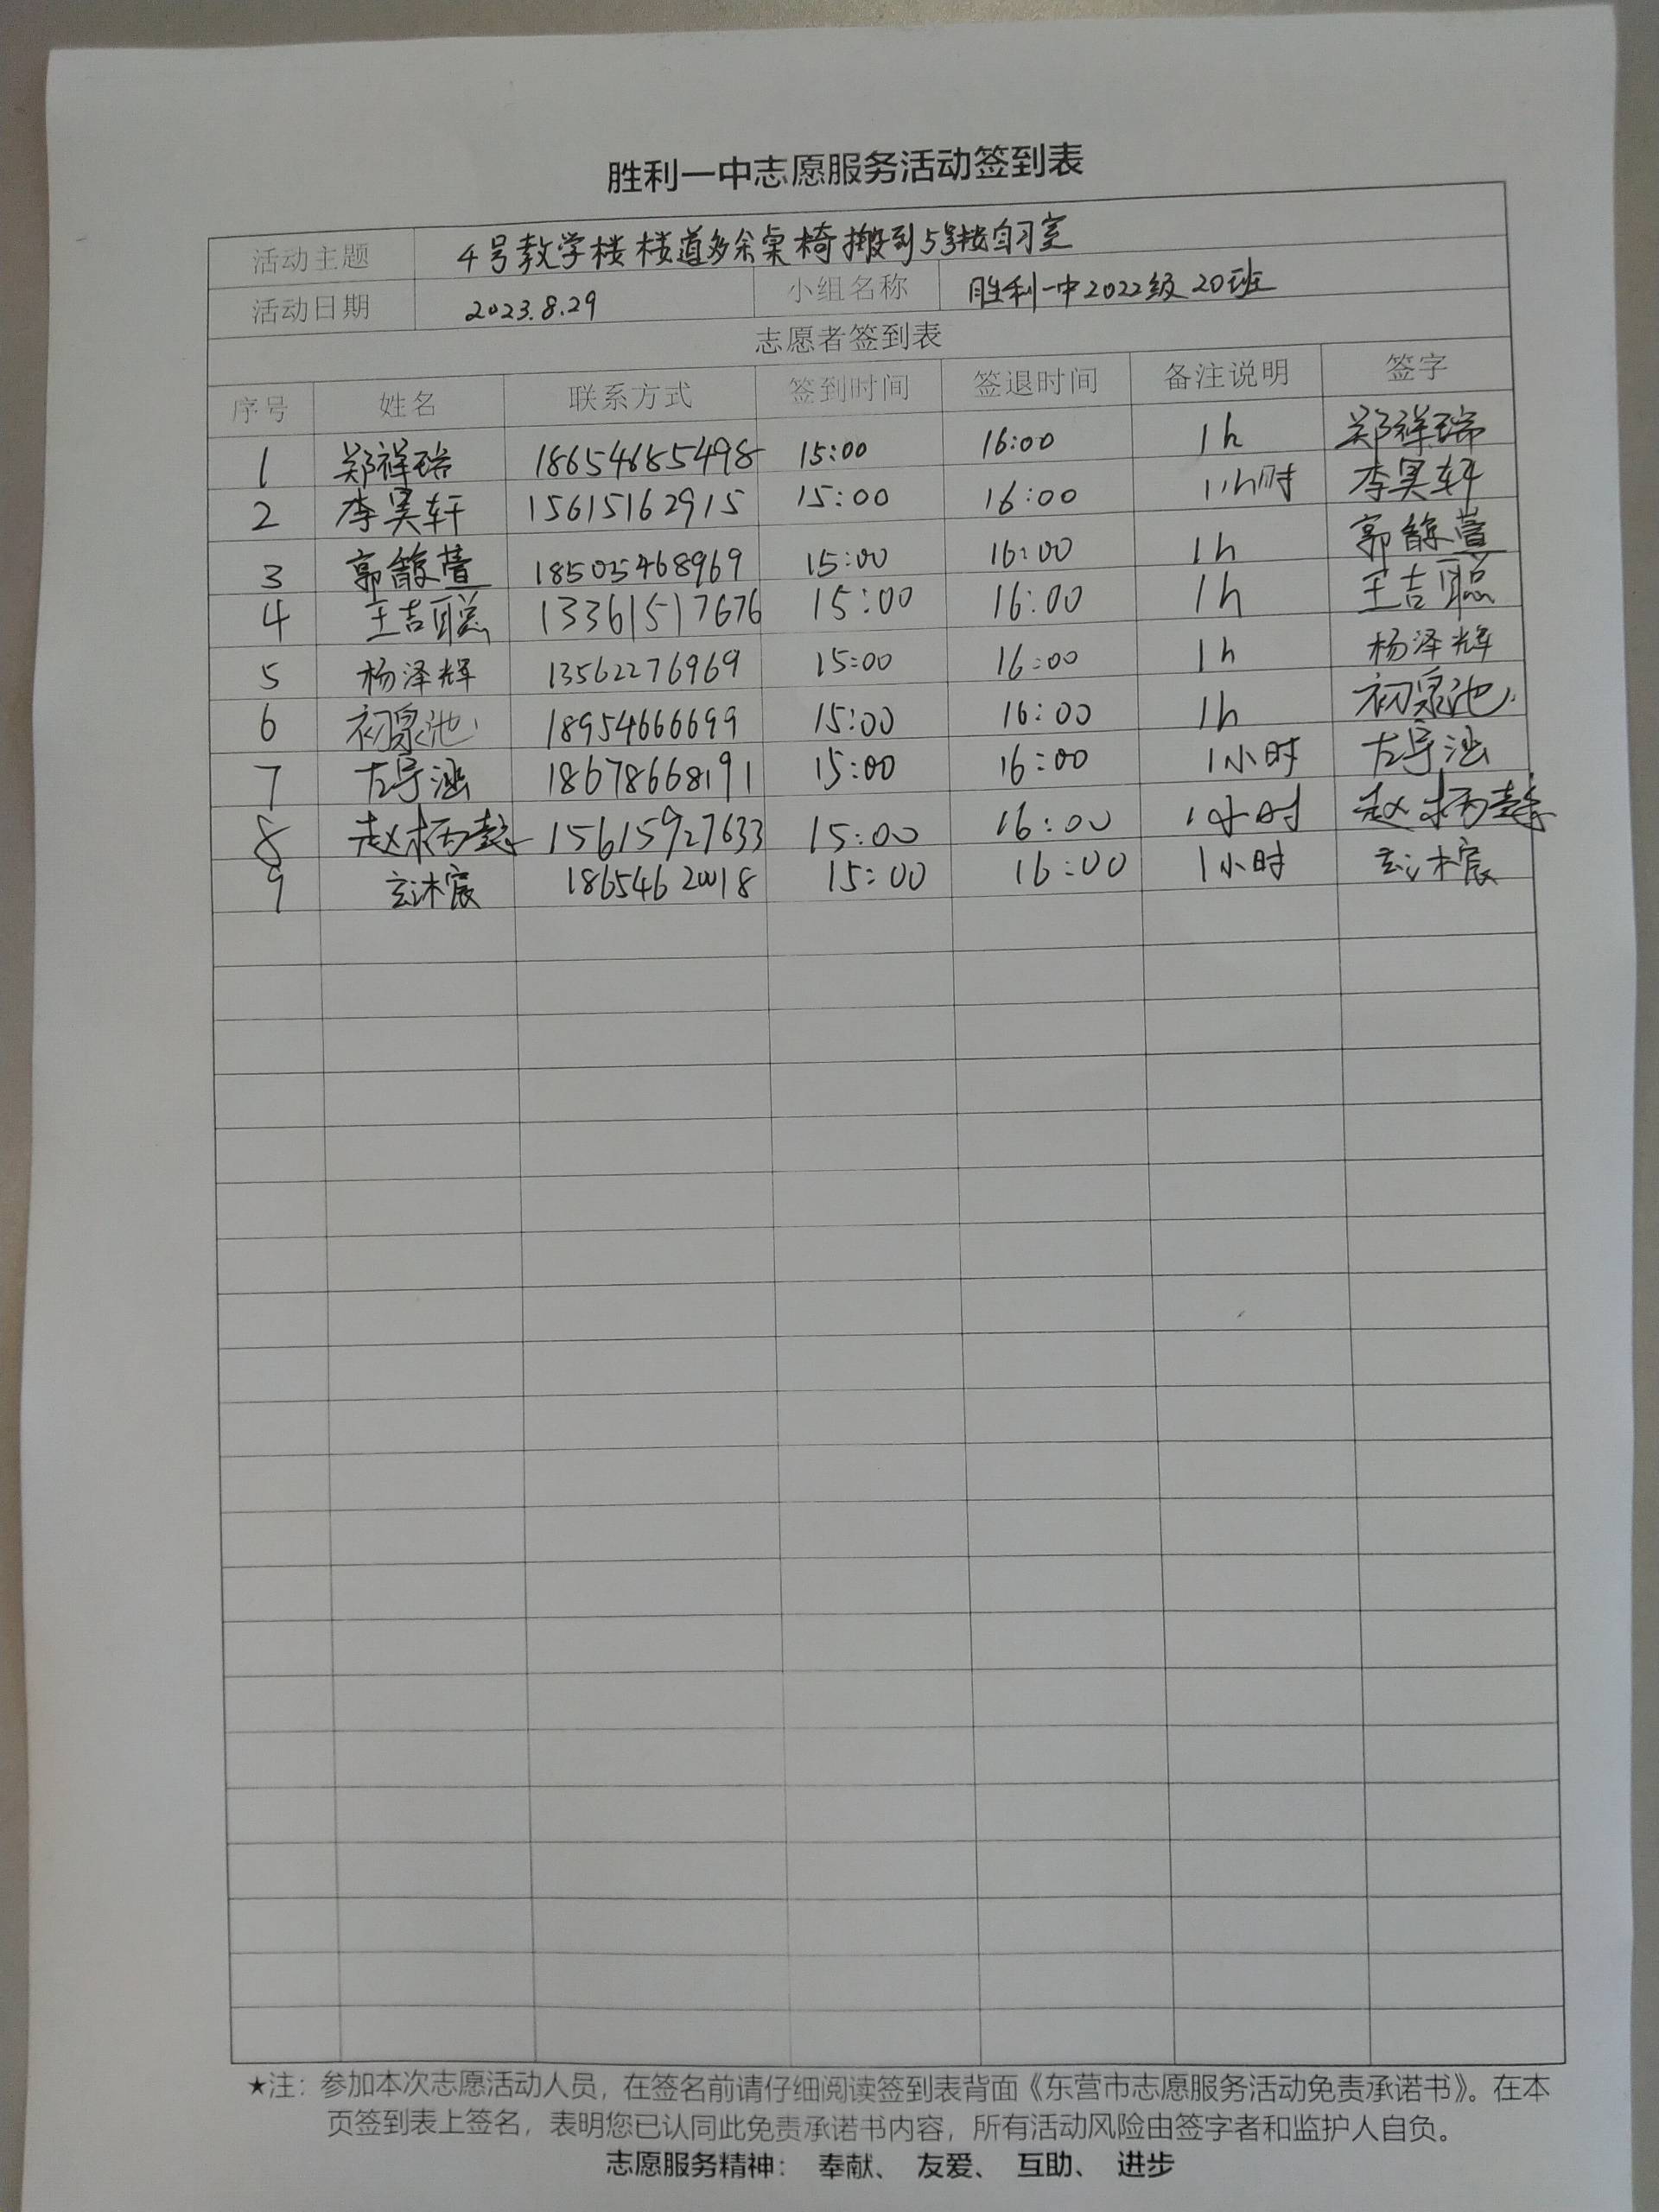 胜利一中志愿服务活动签到表
活动主题 4号教学楼楼道多余桌椅搬到5号楼自习室
活动日期 2023.8.29 小组名称 胜利一中2022级20班
志愿者签到表
序号 姓名 联系方式 签到时间 签退时间 备注说明 签字
1 郑祥瑞 18654685498 15:00 16:00 1h 郑祥瑞
2 李昊轩 15615162915 15:00 16:00 1小时 李昊轩
3 郭馥萱 18505468969 15:00 16:00 1h 郭馥萱
4 王吉聪 13361517676 15:00 16:00 1h 王吉聪
5 杨泽辉 13562276969 15:00 16:00 1h 杨泽辉
6 初泉池 18954666699 15:00 16:00 1h 初泉池
7 左宇涵 18678668191 15:00 16:00 1小时 左宇涵
8 15615927633 15:00 16:00 1小时
9 15:00 16:00 1小时
★注：参加本次志愿活动人员，在签名前请仔细阅读签到表背面《东营市志愿服务活动免责承诺书》。在本
页签到表上签名，表明您已认同此免责承诺书内容，所有活动风险由签字者和监护人自负。
志愿服务精神： 奉献、 友爱、 互助、 进步